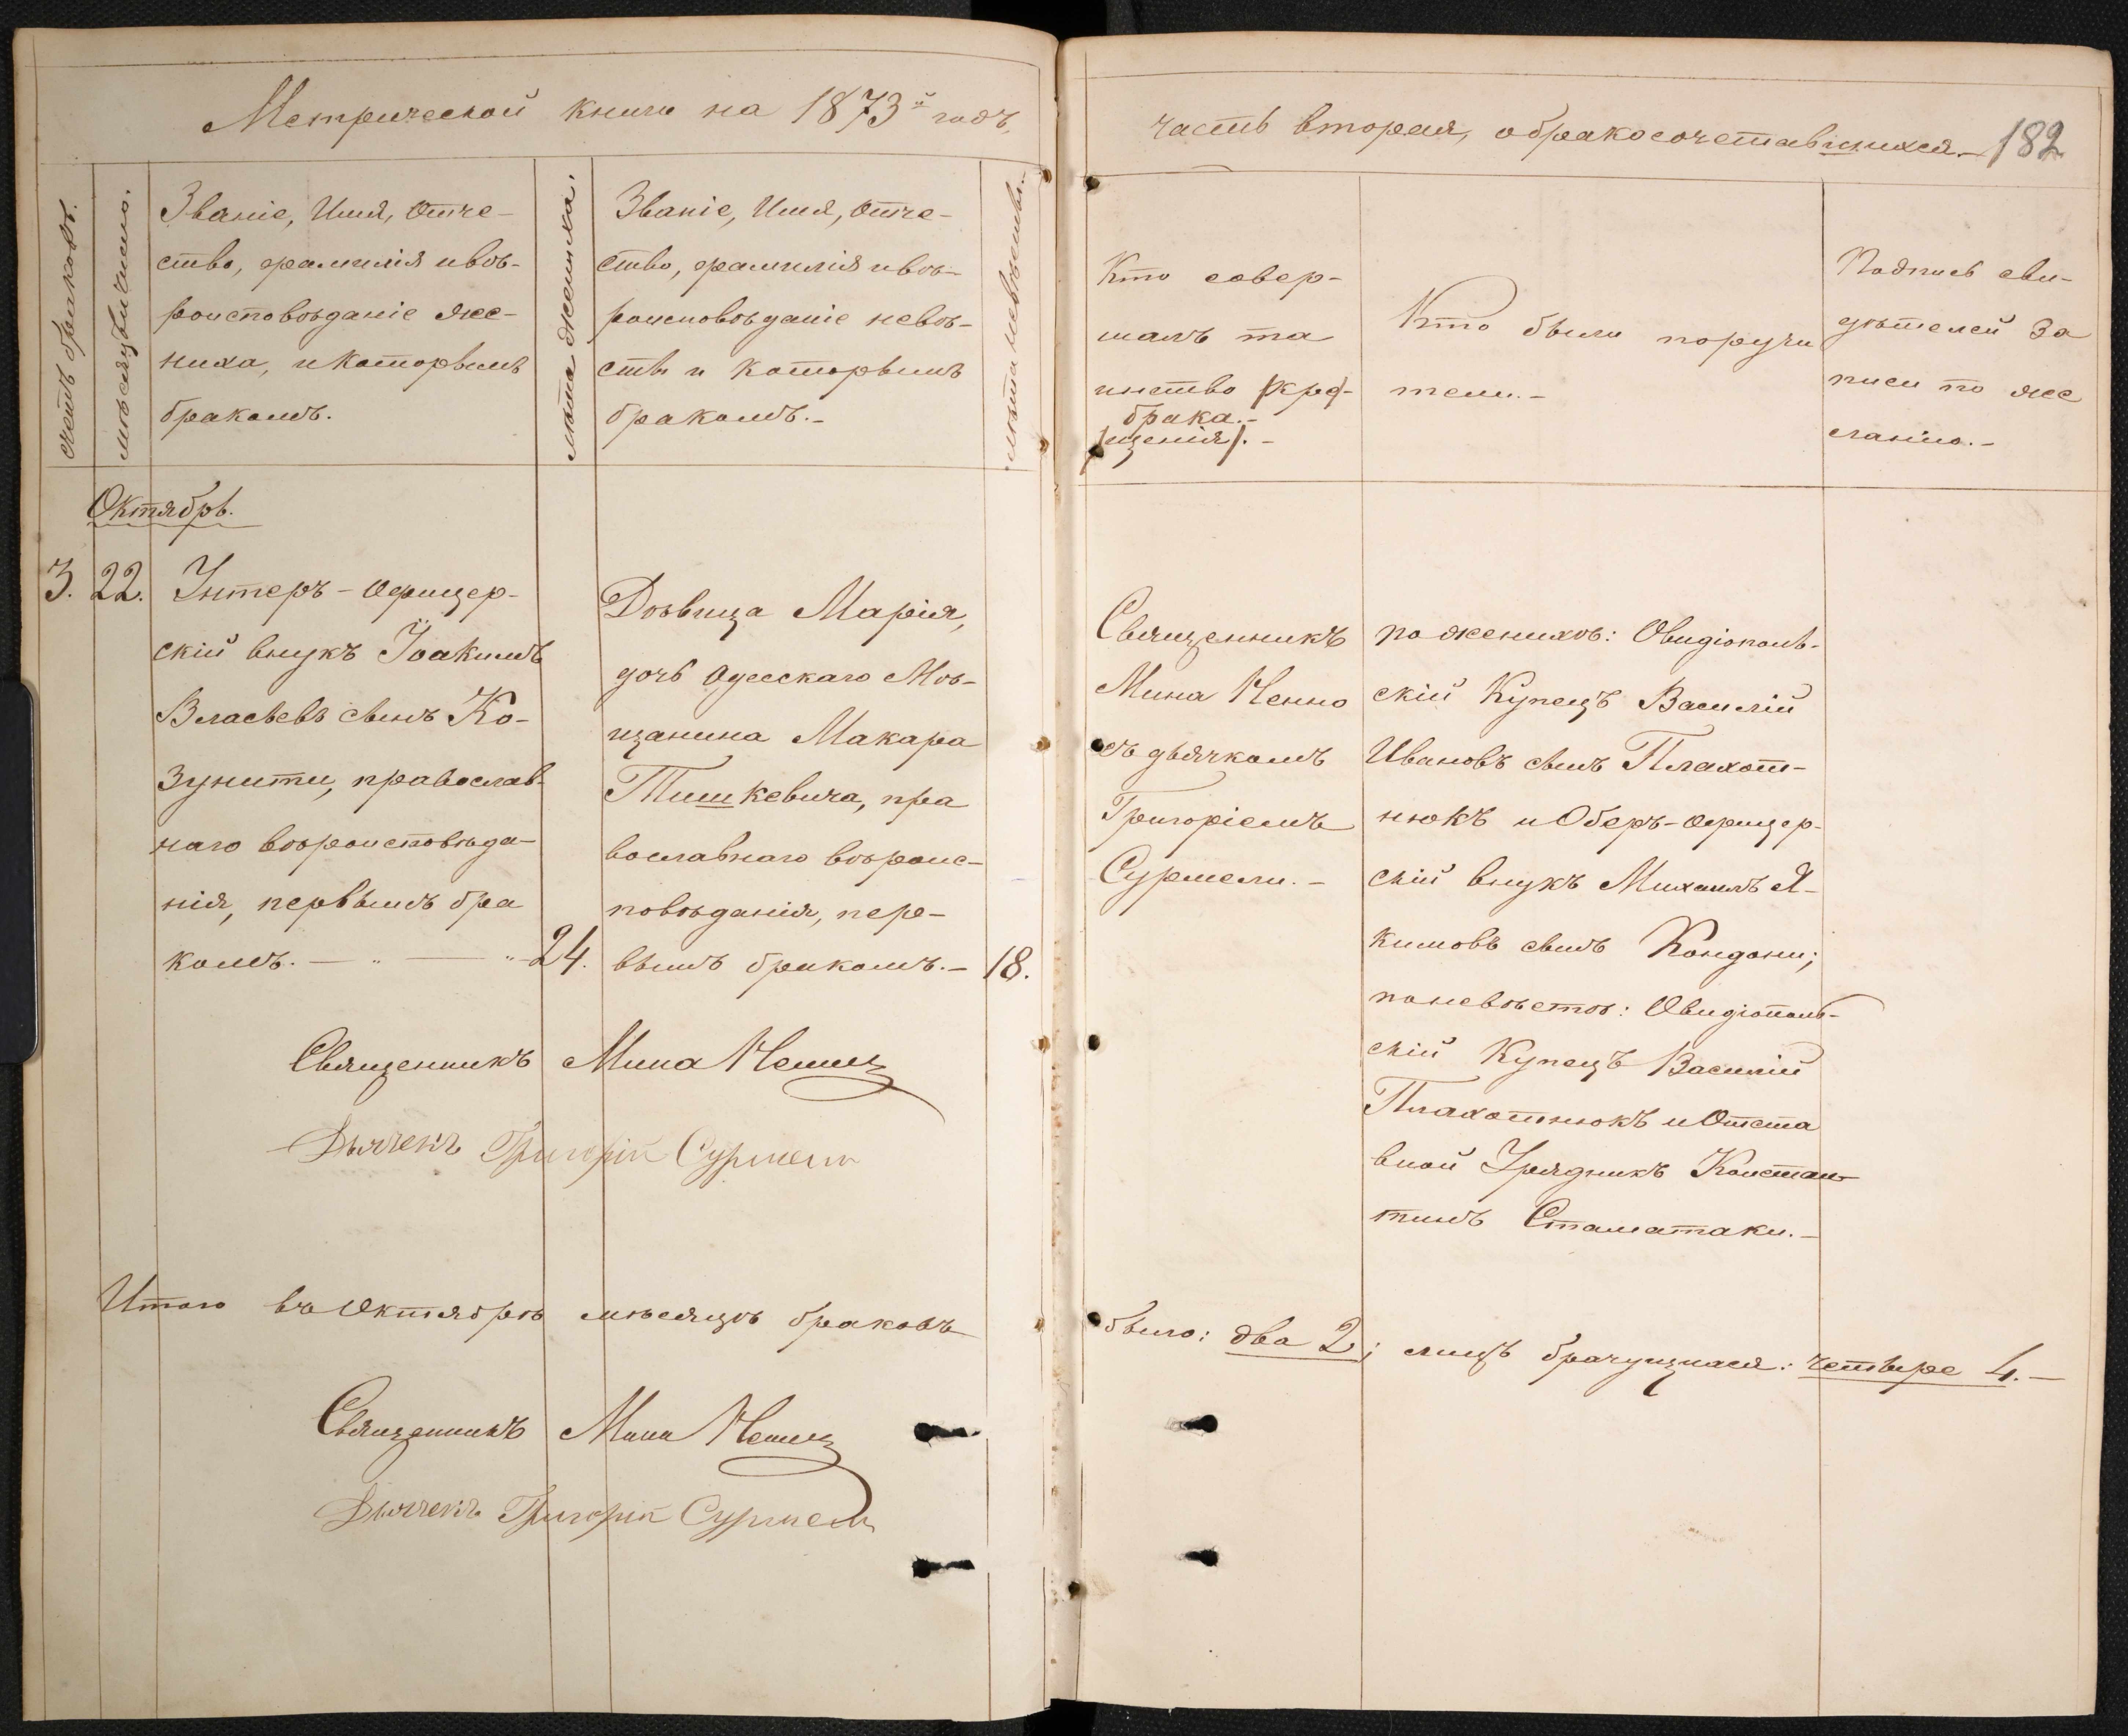 Метрической книги на 1873й годъ,
часть вторая, о бракосочетавшихся. 182
счетъ браковъ.
мѣсяцъ и число.
Званіе, Имя, Отче-
ство, фамилія и вѣ-
роисповѣданіе же-
ниха, и которымъ
бракомъ.
лѣта жениха.
Званіе, Имя, Отче-
ство, фамилія и вѣ-
роисповѣданіе невѣ-
сты и которымъ
бракомъ.-
лѣта невѣсты.
Кто совер-
шалъ та
инство (кре-
брака.-
щенія).-
Кто были поручи
тели.-
Подпись сви-
дѣтелей за
писи по же
ланію.-
Октябрь.
3. 22. Унтеръ-Офицер-
скій внукъ Іоакимъ
Власьевъ сынъ Ко-
зунити, православ-
наго вѣроисповѣда-
нія, первымъ бра
комъ. — „ — „ 24.
Дѣвица Марія,
дочь Одесскаго Мѣ-
щанина Макара
Тишкевича, пра
вославнаго вѣроис-
повѣданія, пер-
вымъ бракомъ.- 18.
Священникъ
Мина Ненно
съ дьячкомъ
Григоріемъ
Сурмели.-
по женихѣ: Овидіополь-
скій Купецъ Василій
Ивановъ сынъ Плахот-
нюкъ и Оберъ-офицер-
скій внукъ Михаилъ Я-
кимовъ сынъ Кондони;
по невѣстѣ: Овидіополь-
скій Купецъ Василій
Плахотнюкъ и Отста
вной Урядникъ Констан-
тинъ Стаматаки.-
Священникъ Мина Ненно
Дьячекъ Григорій Сурмели
Итого въ Октябрѣ мѣсяцѣ браковъ
было: два 2; лицъ брачущихся: четыре 4.-
Священникъ Мина Ненно
Дьячекъ Григорій Сурмели